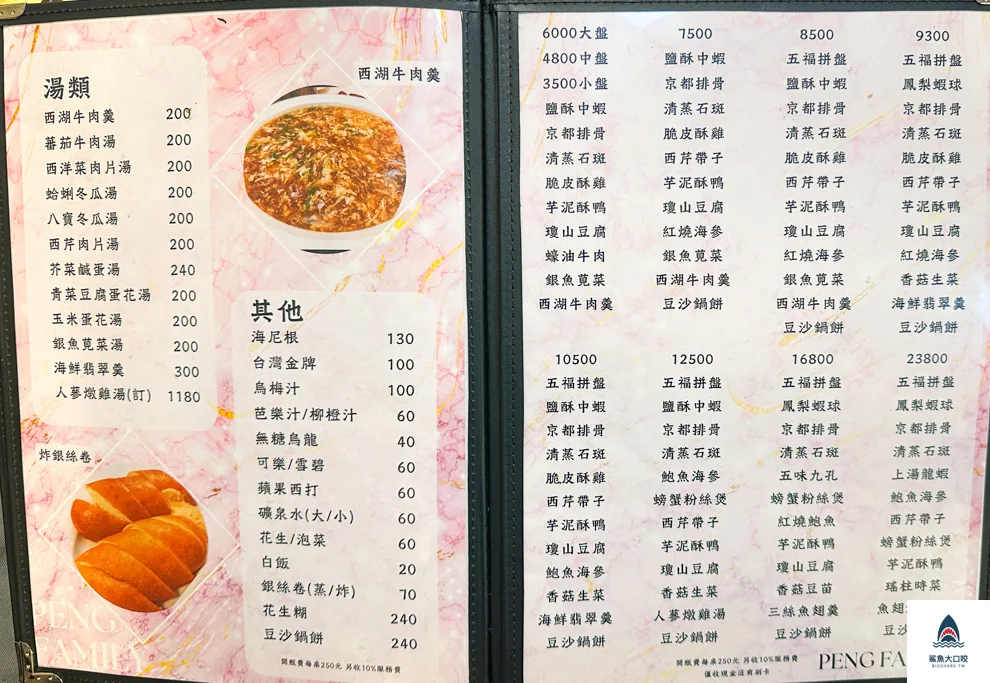 湯類
西湖牛肉羹 200
蕃茄牛肉湯 200
西洋菜肉片湯 200
蛤蜊冬瓜湯 200
八寶冬瓜湯 200
西芹肉片湯 200
芥菜鹹蛋湯 240
青菜豆腐蛋花湯 200
玉米蛋花湯 200
銀魚莧菜湯 200
海鮮翡翠羹 300
人蔘燉雞湯(訂) 1180
炸銀絲卷
PENG
FAMILY
西湖牛肉羹
其他
海尼根 130
台灣金牌 100
烏梅汁 100
芭樂汁/柳橙汁 60
無糖烏龍 40
可樂/雪碧 60
蘋果西打 60
礦泉水(大/小) 60
花生/泡菜 60
白飯 20
銀絲卷(蒸/炸) 70
花生糊 240
豆沙鍋餅 240
開瓶費每桌250元 另收10%服務費
6000大盤
4800中盤
3500小盤
鹽酥中蝦
京都排骨
清蒸石斑
脆皮酥雞
芋泥酥鴨
瓊山豆腐
蠔油牛肉
銀魚莧菜
西湖牛肉羹
7500
鹽酥中蝦
京都排骨
清蒸石斑
脆皮酥雞
西芹帶子
芋泥酥鴨
瓊山豆腐
紅燒海參
銀魚莧菜
西湖牛肉羹
豆沙鍋餅
8500
五福拼盤
鹽酥中蝦
京都排骨
清蒸石斑
脆皮酥雞
西芹帶子
芋泥酥鴨
瓊山豆腐
紅燒海參
銀魚莧菜
西湖牛肉羹
豆沙鍋餅
9300
五福拼盤
鳳梨蝦球
京都排骨
清蒸石斑
脆皮酥雞
西芹帶子
芋泥酥鴨
瓊山豆腐
紅燒海參
香菇生菜
海鮮翡翠羹
豆沙鍋餅
10500
五福拼盤
鹽酥中蝦
京都排骨
清蒸石斑
脆皮酥雞
西芹帶子
芋泥酥鴨
瓊山豆腐
鮑魚海參
香菇生菜
海鮮翡翠羹
豆沙鍋餅
12500
五福拼盤
鹽酥中蝦
京都排骨
清蒸石斑
鮑魚海參
螃蟹粉絲煲
西芹帶子
芋泥酥鴨
瓊山豆腐
香菇生菜
人蔘燉雞湯
豆沙鍋餅
16800
五福拼盤
鳳梨蝦球
京都排骨
清蒸石斑
五味九孔
螃蟹粉絲煲
紅燒鮑魚
芋泥酥鴨
瓊山豆腐
香菇豆苗
三絲魚翅羹
豆沙鍋餅
23800
五福拼盤
鳳梨蝦球
京都排骨
清蒸石斑
上湯龍蝦
鮑魚海參
西芹帶子
螃蟹粉絲煲
芋泥酥鴨
瑤柱時菜
魚翅
豆沙
開瓶費每桌250元 另收10%服務費
僅收現金沒有刷卡
PENG FA
鯊魚大口咬
BIGSHARK.TW